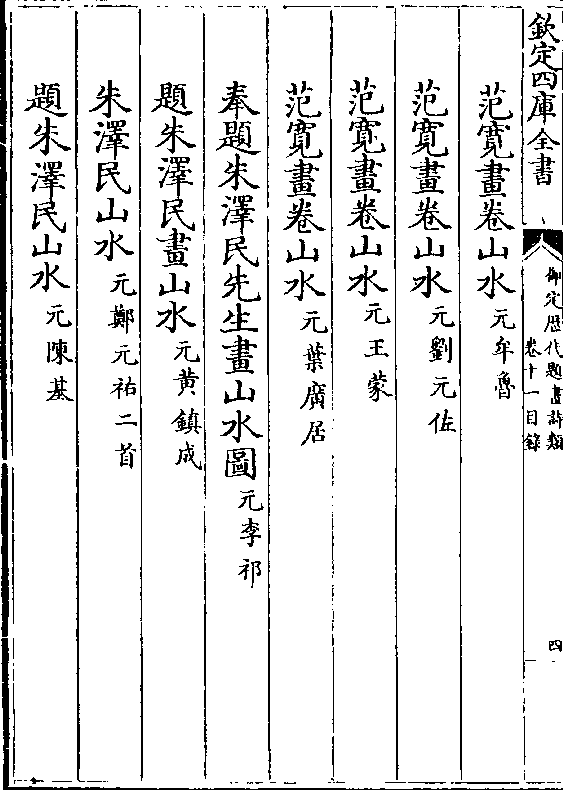 欽定四庫全書
御定歴代題畫詩類
卷十一目錄
四
范寛畫卷山水 元牟魯
范寛畫卷山水 元劉元佐
范寛畫卷山水 元王蒙
范寛畫卷山水 元葉廣居
奉題朱澤民先生畫山水圖 元李祁
題朱澤民畫山水 元黄鎮成
朱澤民山水 元鄭元祐二首
題朱澤民山水 元陳基